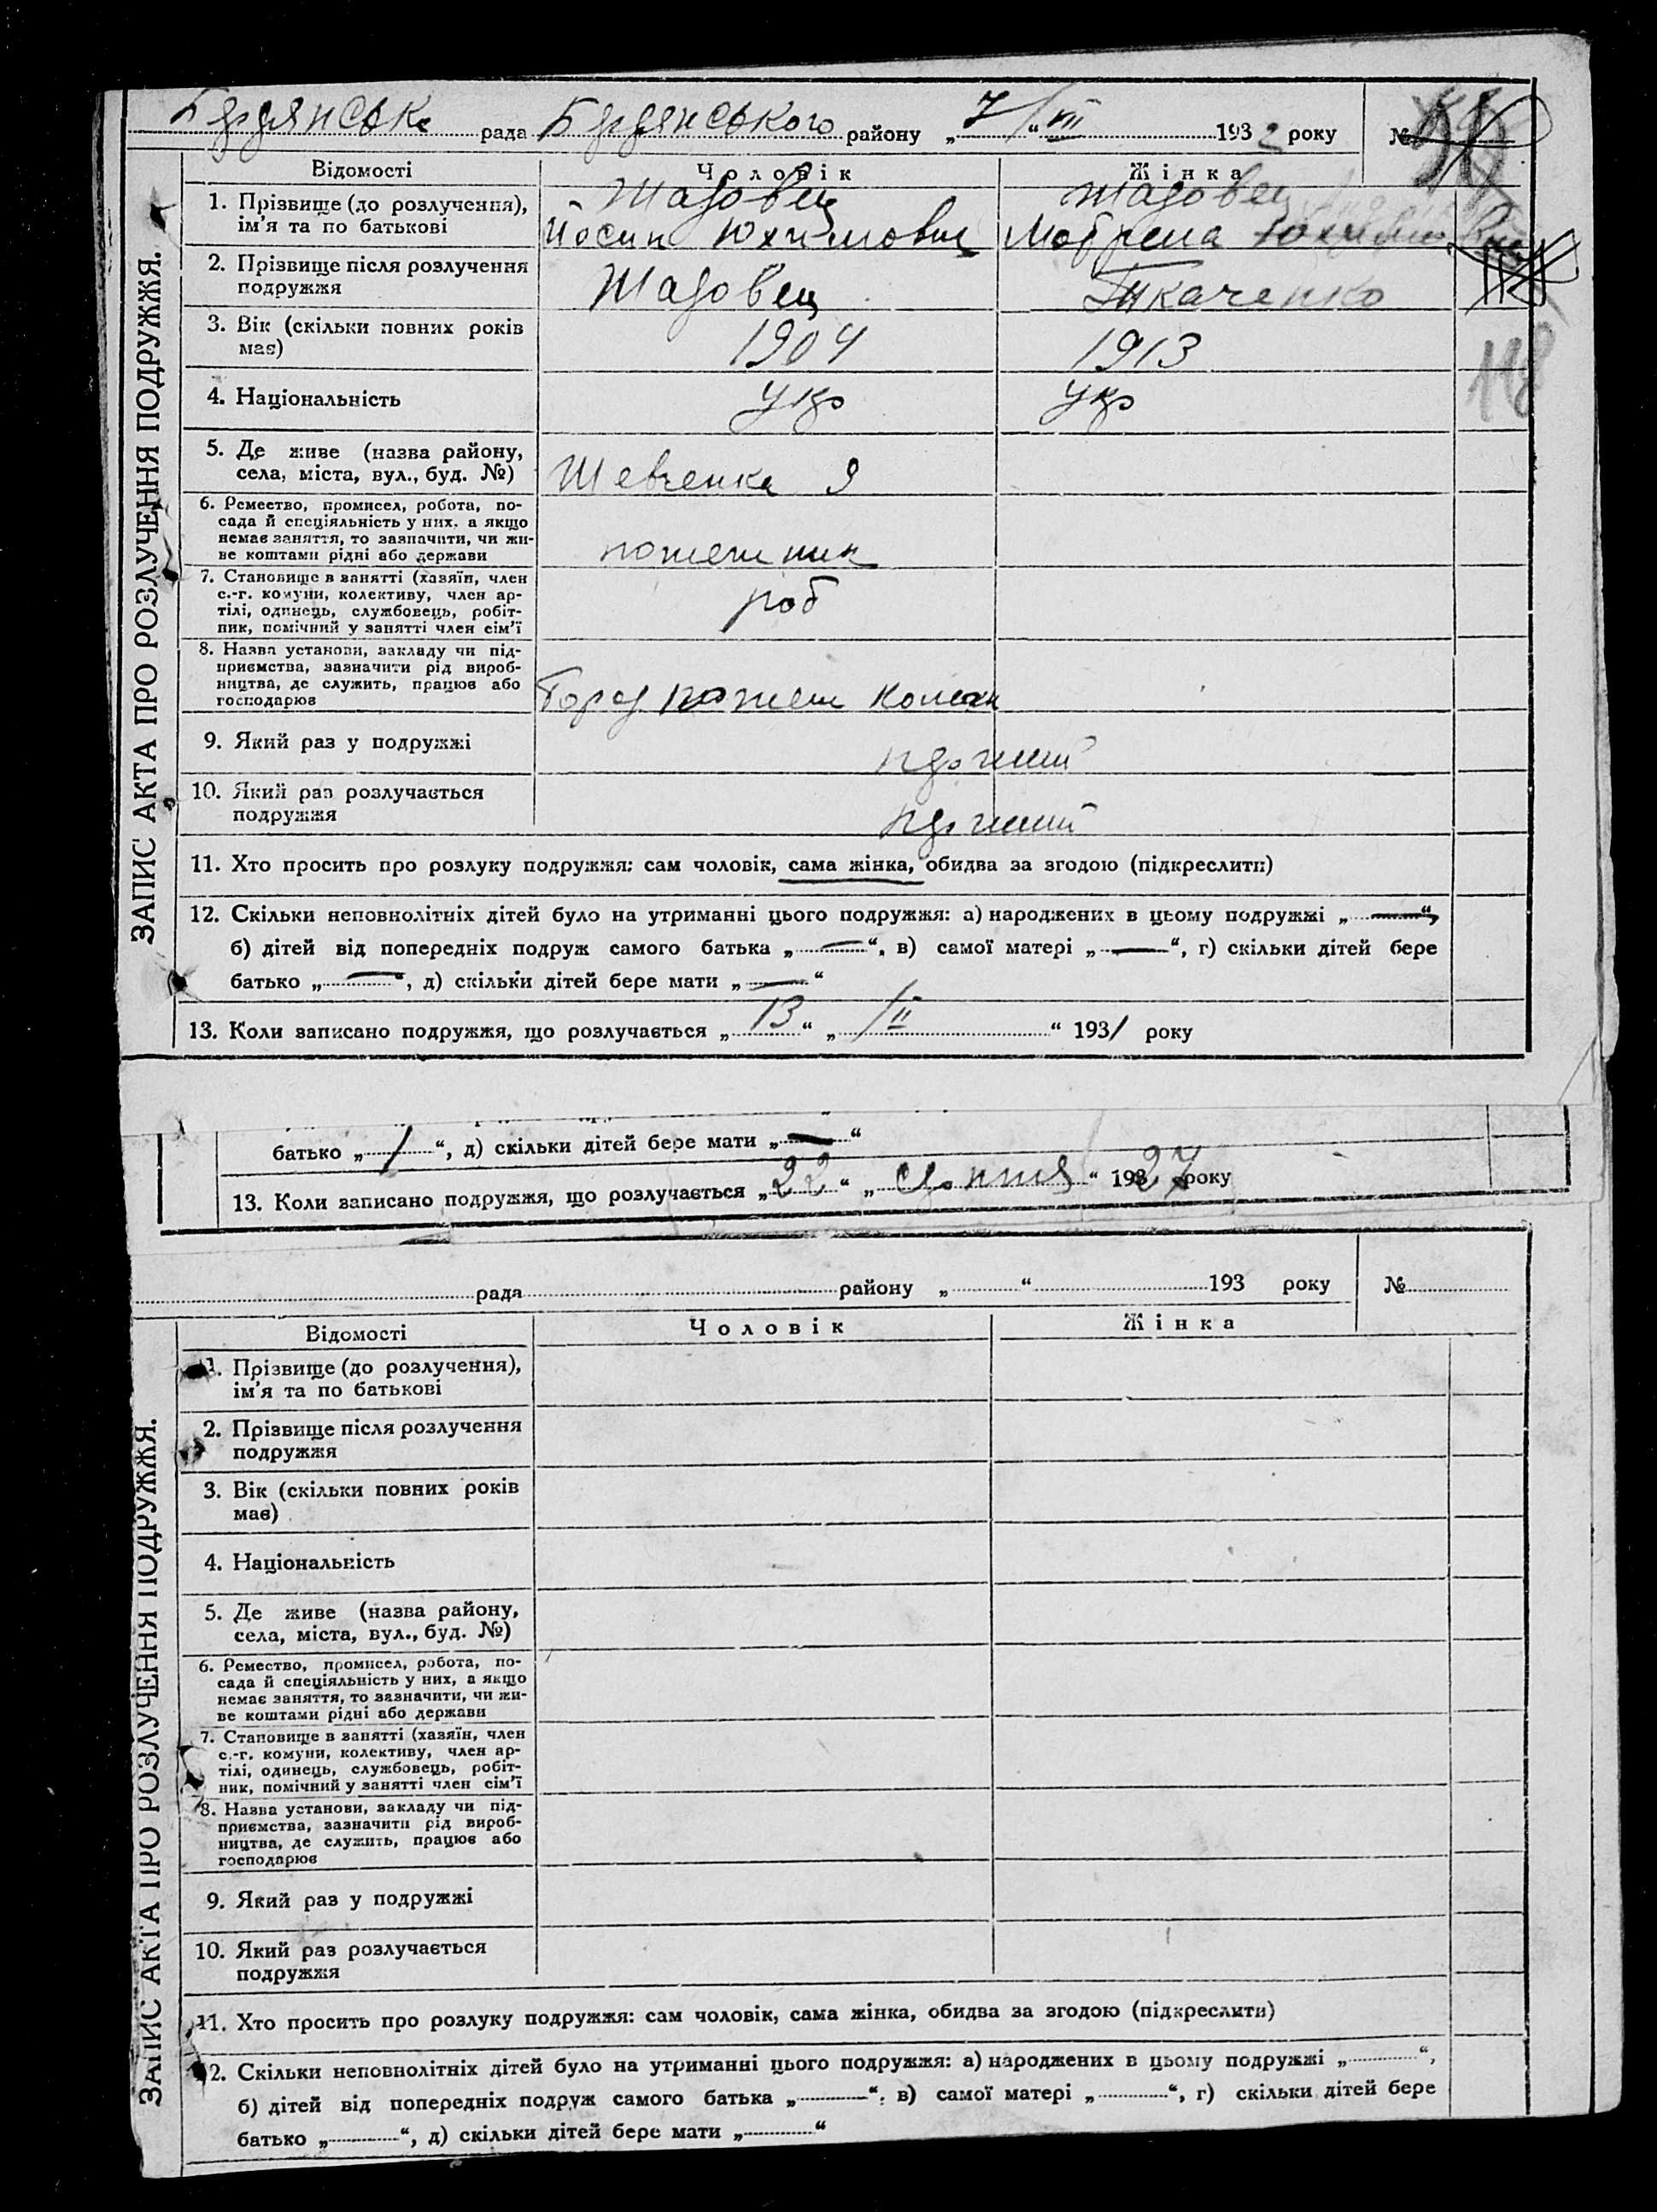 Бердянська рада Бердянського району „ 7 “ VII 1932 року №
Відомості Чоловік Жінка
1. Прізвище (до розлучення), ім'я та по батькові
Шадовец Шадовец
Йосип Юхимович Мотрена
2. Прізвище після розлучення подружжя
Шадовец Ткаченко
3. Вік (скільки повних років має)
1904 1913
4. Національність
укр укр
5. Де живе (назва району, села, міста, вул., буд. №)
Шевченка 9
6. Ремество, промисел, робота, по-
сада й спеціяльність у них, а якщо
немає заняття, то зазначити, чи жи-
ве коштами рідні або держави
пожежник
7. Становище в занятті (хазяїн, член
с.-г. комуни, колективу, член ар-
тілі, одинець, службовець, робіт-
ник, помічний у занятті член сім'ї
роб
8. Назва установи, закладу чи під-
приємства, зазначити рід вироб-
ництва, де служить, працює або
господарює
Город пожеж
9. Який раз у подружжі
10. Який раз розлучається
подружжя
11. Хто просить про розлуку подружжя: сам чоловік, сама жінка, обидва за згодою (підкреслити)
12. Скільки неповнолітніх дітей було на утриманні цього подружжя: а) народжених в цьому подружжі „ — “,
б) дітей від попередніх подруж самого батька „ — “, в) самої матері „ — “, г) скільки дітей бере
батько „ — “, д) скільки дітей бере мати „ — “
13. Коли записано подружжя, що розлучається „ 13 “ „ II “ 1931 року
ЗАПИС АКТА ПРО РОЗЛУЧЕННЯ ПОДРУЖЖЯ.
118
батько „ 1 “, д) скільки дітей бере мати „ — “
13. Коли записано подружжя, що розлучається „ 22 “ „ “ 1927 року
рада району „ “ 193 року №
Відомості Чоловік Жінка
1. Прізвище (до розлучення),
ім'я та по батькові
2. Прізвище після розлучення
подружжя
3. Вік (скільки повних років
має)
4. Національність
5. Де живе (назва району,
села, міста, вул., буд. №)
6. Ремество, промисел, робота, по-
сада й спеціяльність у них, а якщо
немає заняття, то зазначити, чи жи-
ве коштами рідні або держави
7. Становище в занятті (хазяїн, член
с.-г. комуни, колективу, член ар-
тілі, одинець, службовець, робіт-
ник, помічний у занятті член сім'ї
8. Назва установи, закладу чи під-
приємства, зазначити рід вироб-
ництва, де служить, працює або
господарює
9. Який раз у подружжі
10. Який раз розлучається
подружжя
11. Хто просить про розлуку подружжя: сам чоловік, сама жінка, обидва за згодою (підкреслити)
12. Скільки неповнолітніх дітей було на утриманні цього подружжя: а) народжених в цьому подружжі „ “,
б) дітей від попередніх подруж самого батька „ “, в) самої матері „ “, г) скільки дітей бере
батько „ “, д) скільки дітей бере мати „ “
ЗАПИС АКТА ПРО РОЗЛУЧЕННЯ ПОДРУЖЖЯ.